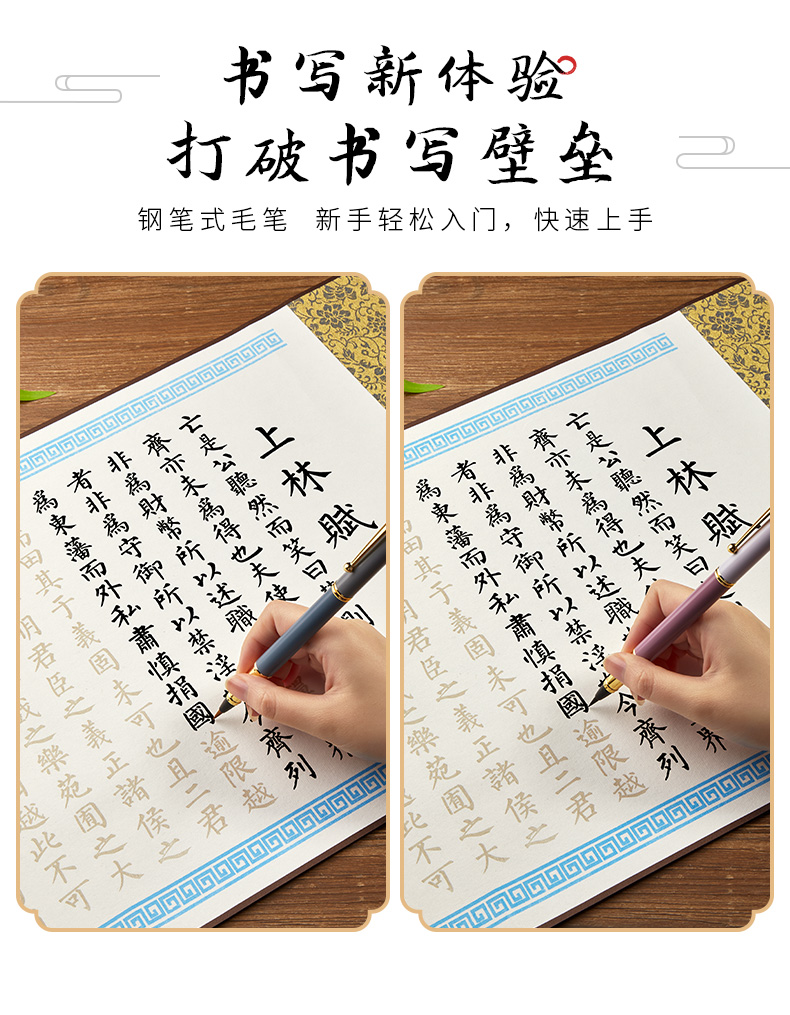 书写新体验
打破书写壁垒
钢笔式毛笔 新手轻松入门，快速上手
上林賦
亡是公聽然而笑曰
齊亦未爲得也夫使
非爲財幣所以述職
界
者非爲守御所以禁淫
今齊列
爲東藩而外私肅慎捐國逾限越
田其于義固未可也且二君
明君臣之義正諸侯之
之樂苑囿之大
越此不可
上林賦
亡是公聽然而笑曰
齊亦未爲得也夫
非爲財幣所以述職
界
者非爲守御所以禁淫
今齊列
爲東藩而外私肅慎捐國逾限越
田其于義固未可也且二君
君臣之義正諸侯之
之樂苑囿之大
此不可